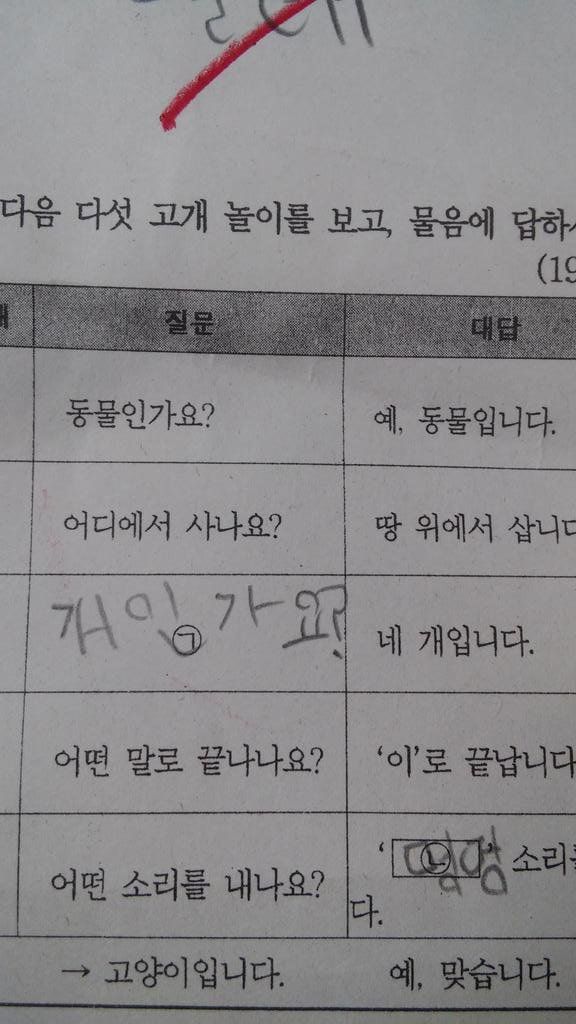 다음 다섯 고개 놀이를 보고, 물음에 답하
(19
질문 대답
동물인가요? 예, 동물입니다.
어디에서 사나요? 땅 위에서 삽니다
개인가요?
㉠ 네 개입니다.
어떤 말로 끝나나요? '이'로 끝납니다
어떤 소리를 내나요? '㉡' 소리를
다.
→ 고양이입니다. 예, 맞습니다.